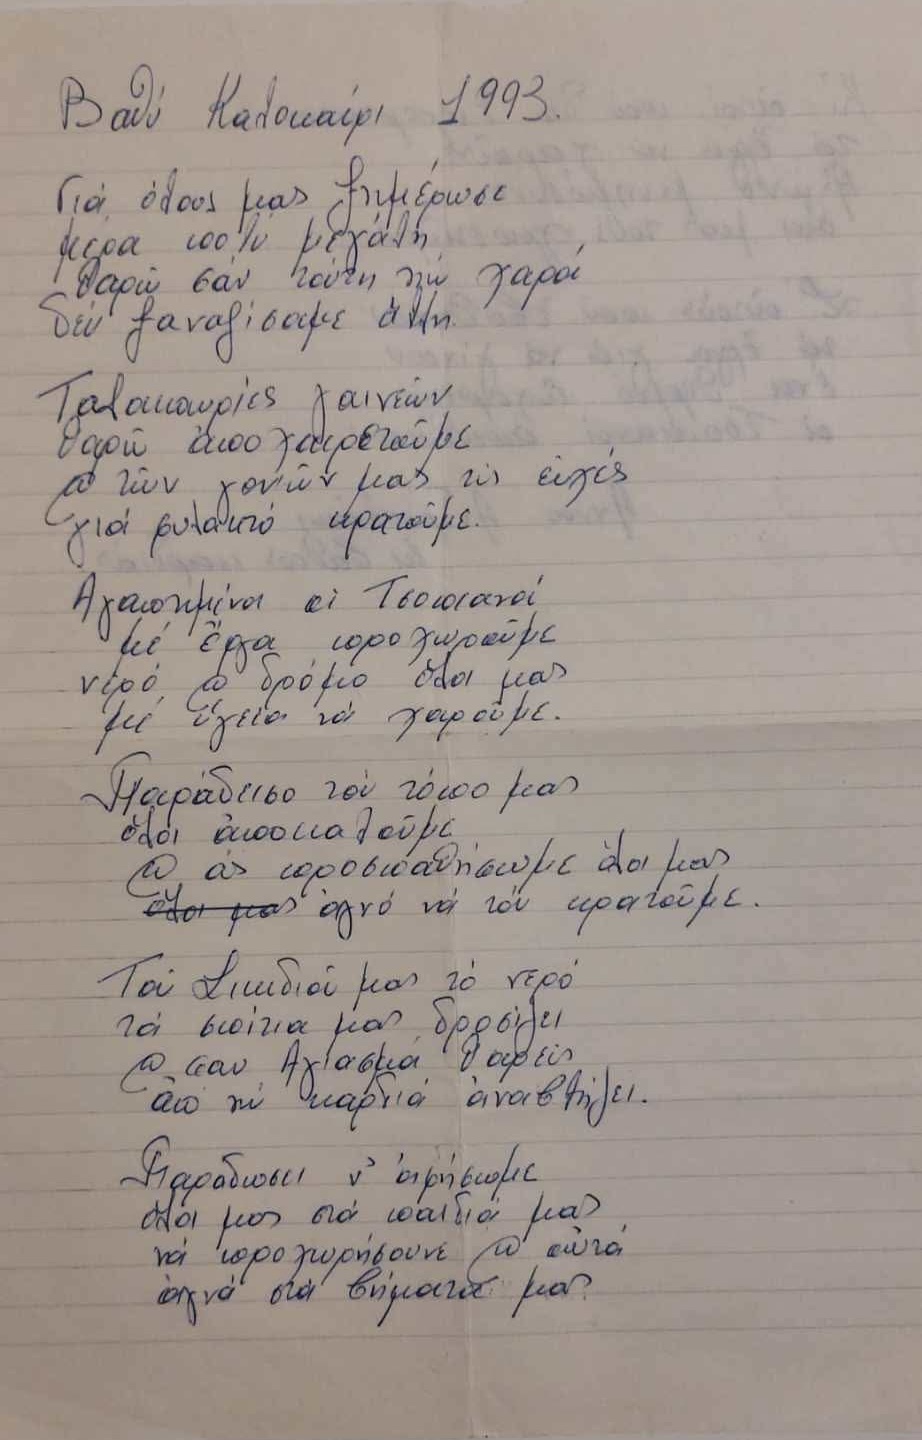 Βαθύ Καλοκαίρι 1993.
Γιά όλους μας ξημέρωσε
μέρα πολύ μεγάλη
θαρῶ σάν τούτη τήν χαρά
δέν ξαναζίσαμε ἄλλη.
Ταλαιπωρίες χαινεών
θαρῶ ἀποχαιρετοῦμε
@ τῶν γονιῶν μας τίς εὐχές
γιά φυλακτό κρατοῦμε.
Αγαπημένοι οἱ Τσοπανοί
μέ ἔργα προχωροῦμε
νερό @ δρόμο ὅλοι μας
μέ ὑγεία νά χαροῦμε.
Παράδεισο τόν τόπο μας
ὅλοι ἀποκαλοῦμε
@ ἄς προσπαθήσωμε ὅλοι μας
ὅλοι μας ἁγνό νά τόν κρατοῦμε.
Τοῦ Σικιδιοῦ μας τό νερό
τά σπίτια μας δροσίζει
@ σαν Αγιασμό θαρείς
ἀπό τήν καρδιά ἀναβλήζει.
Παράδωσει ν' ἀφήσωμε
ὅλοι μας στά παιδιά μας
νά προχωρήσουνε @ αὐτά
ἁγνά στά βήματα μας.